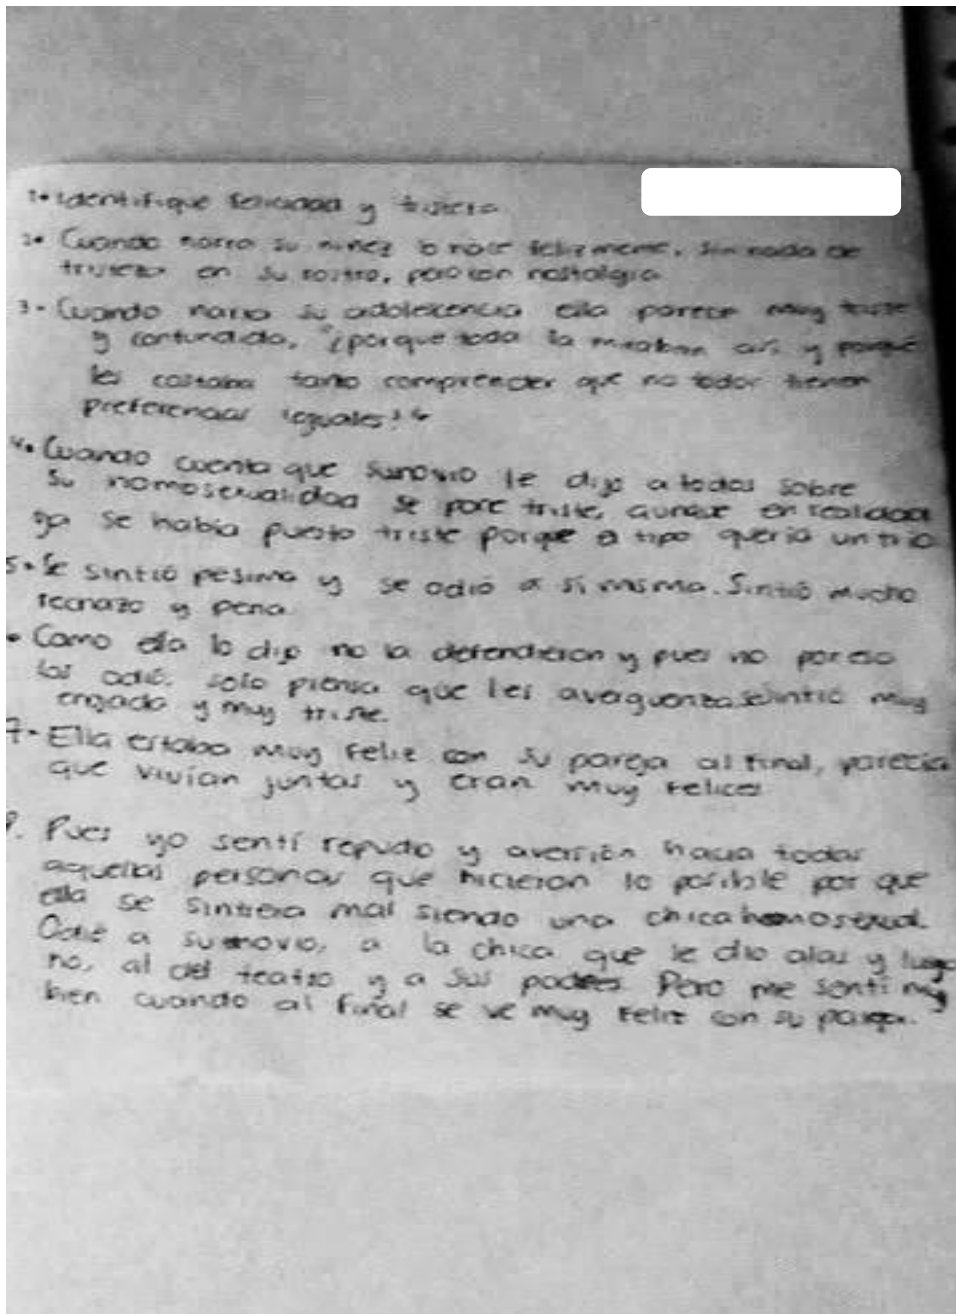 1• Identifique felicidad y tristeza
2• Cuando narra su niñez lo hace felizmente, sin nada de
tristeza en su rostro, pero con nostalgia
3- Cuando narra su adolescencia ella parece muy triste
y confundida, "¿porque toda la miraban así y porqué
les costaba tanto comprender que no todos tienen
preferencias iguales?"
4• Cuando cuenta que su novio le dijo a todos sobre
su homosexualidad se pone triste, aunque en realidad
ya se había puesto triste porque el tipo quería un trío
5• Se sintió pesima y se odió a sí misma. Sintió mucho
rechazo y pena
• Como ella lo dijo no la defendieron y pues no por eso
los odió, solo piensa que les averguenza sintió muy
enojada y muy triste.
7- Ella estaba muy feliz con su pareja al final, parecía
que vivían juntas y eran muy felices
8. Pues yo sentí repudio y aversión hacia todas
aquellas personas que hicieron lo posible por que
ella se sintiera mal siendo una chica homosexual.
Odié a su novio, a la chica que le dio alas y luego
no, al del teatro y a sus padres Pero me sentí muy
bien cuando al final se ve muy feliz con su pareja.